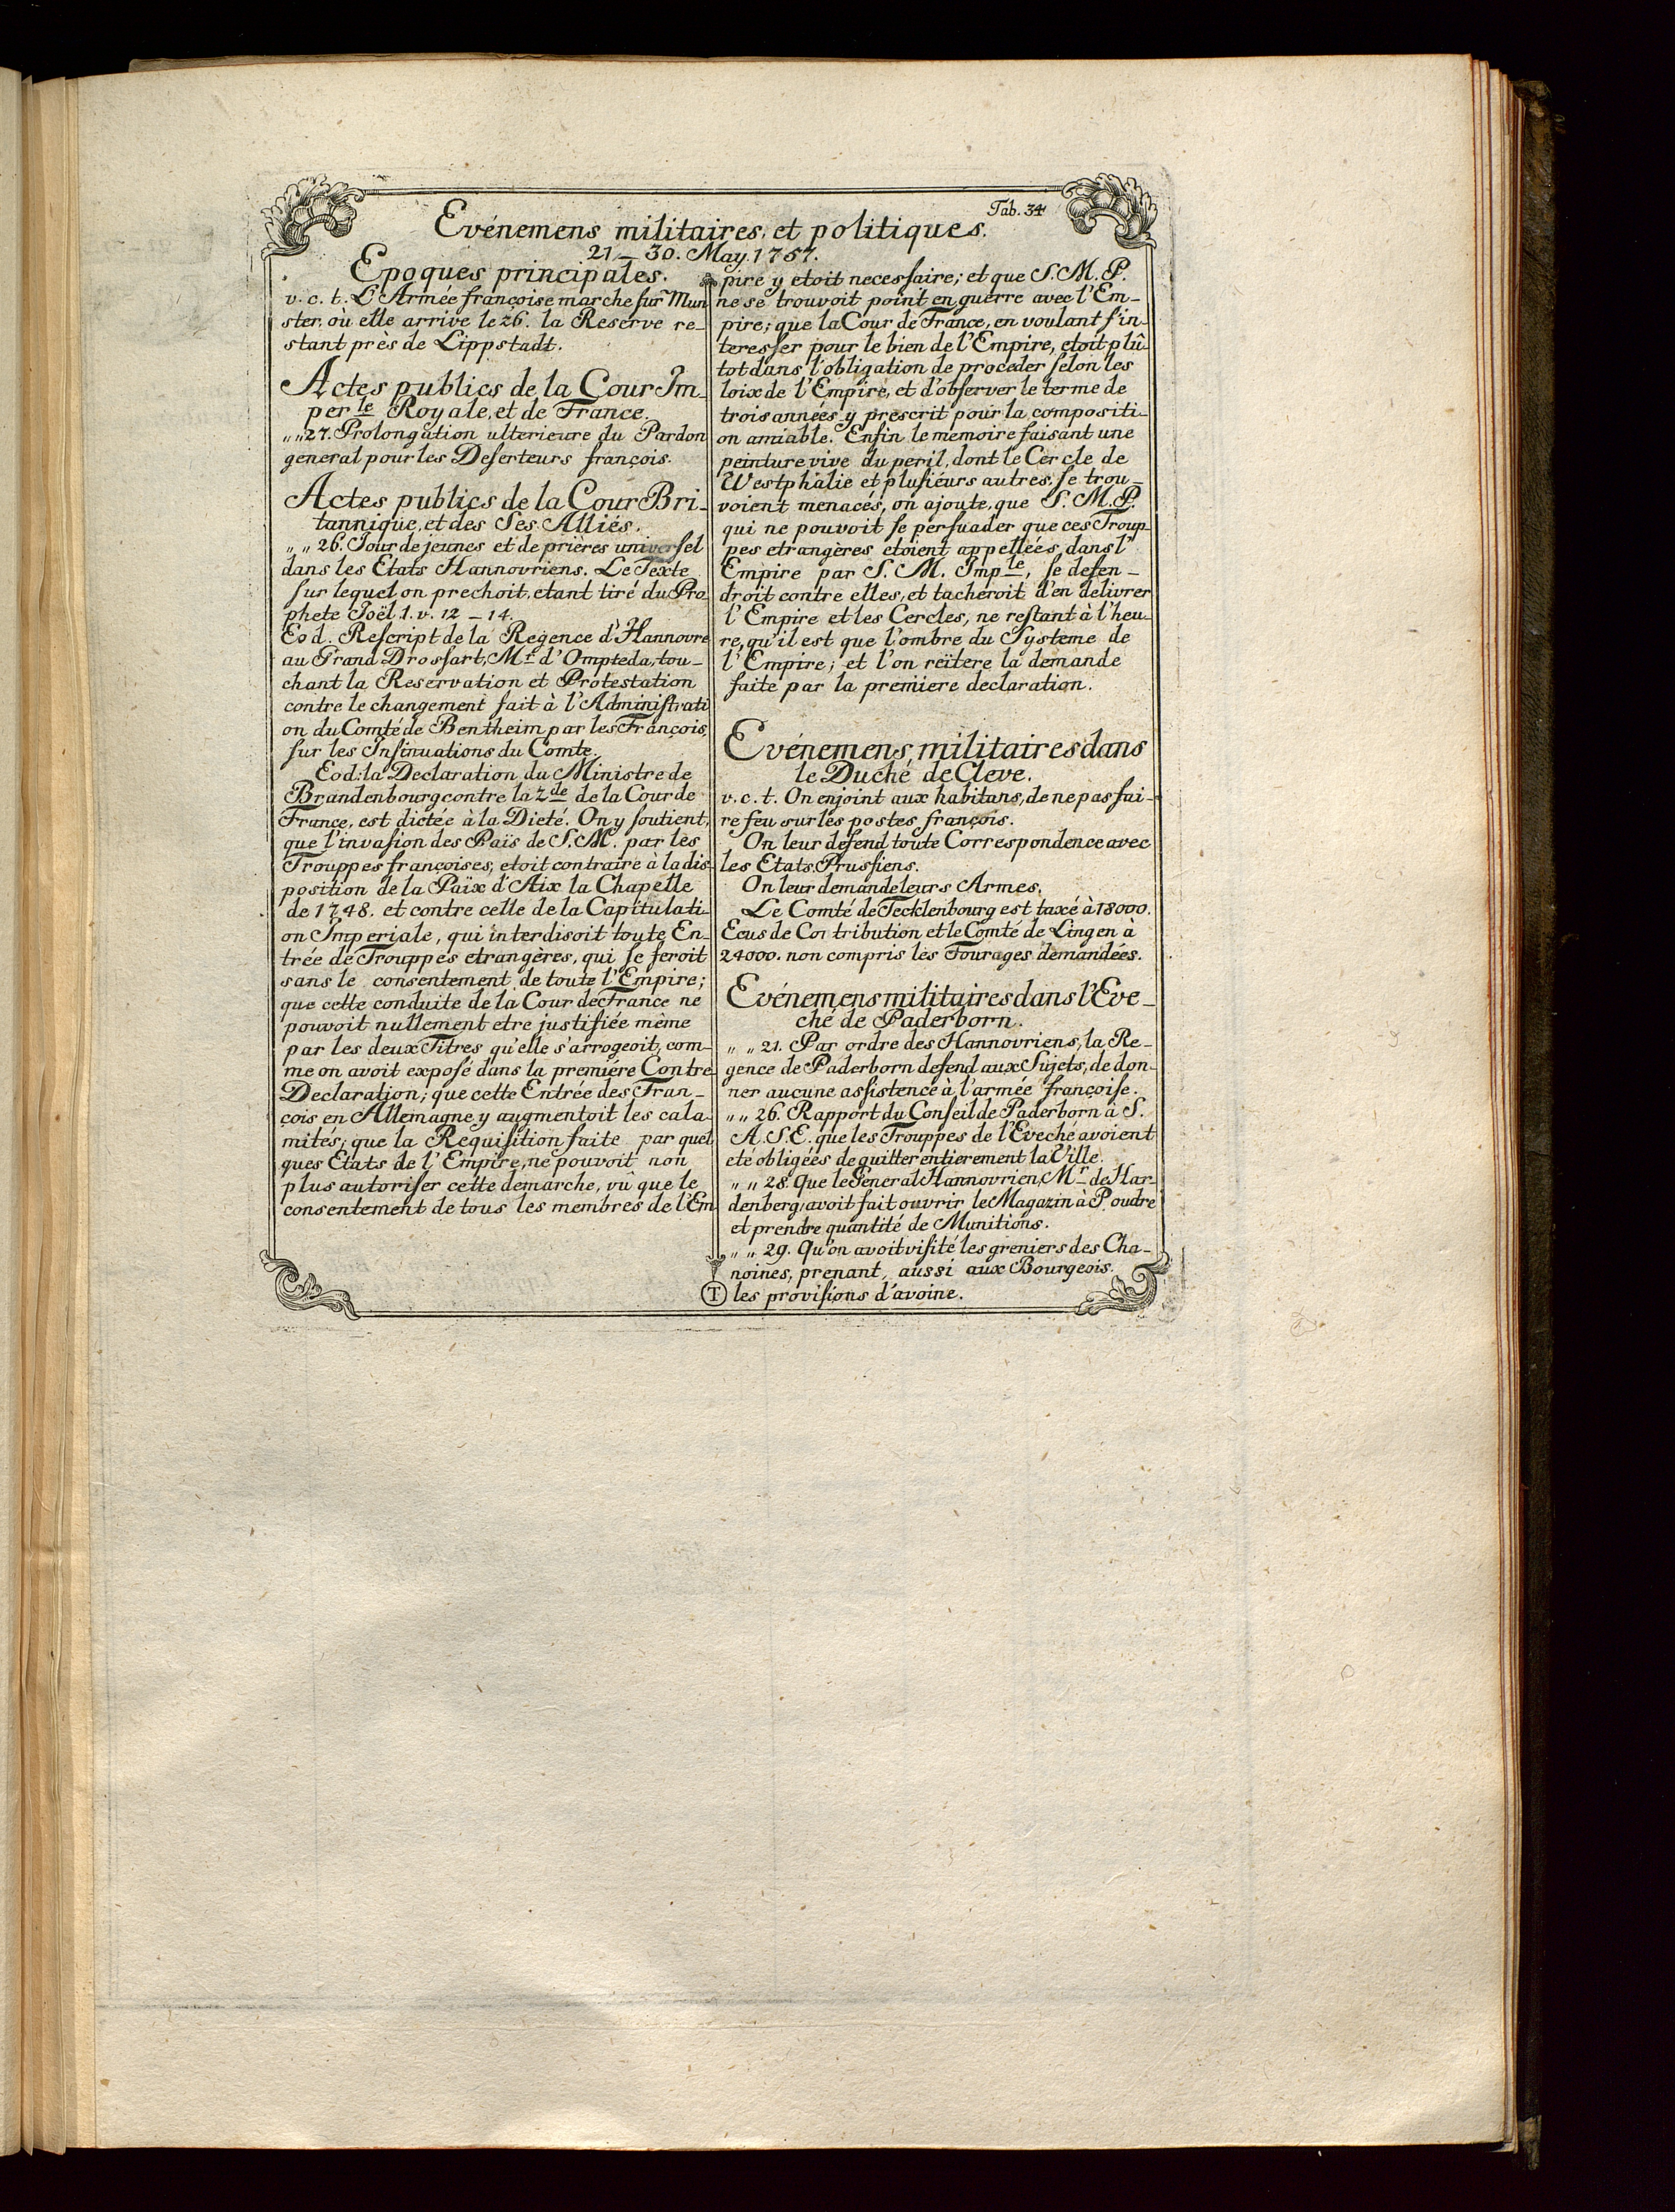 Tab. 34
Evénemens militaires, et politiques.
21 — 30. May. 1757.
Epoques principales.
v. c. t. L'Armée françoise marche sur Mun
ster. où elle arrive le 26. la Reserve re-
stant près de Lippstadt.
Actes publics de la Cour Im-
per le Royale, et de France.
„ „ 27. Prolongation ulterieure du Pardon
general pour les Deserteurs françois.
Actes publics de la Cour Bri-
tannique, et des Ses Alliés.
„ „ 26. Jour de jeunes et de prières universel
dans les Etats Hannovriens. Le Texte
sur lequel on prechoit, etant tiré du Pro
phete Joël. 1. v. 12 – 14.
Eod. Rescript de la Regence d'Hannovre
au Grand Drossart, Mr. d'Ompteda, tou-
chant la Reservation et Protestation
contre le changement fait à l'Administrati
on du Comté de Bentheim par les François,
sur les Insinuations du Comte.
Eod: la Declaration du Ministre de
Brandenbourg contre la 2de de la Cour de
France, est dictée à la Dieté. On y soutient,
que l'invasion des Païs de S. M. par les
Trouppes françoises, etoit contraire à la dis
position de la Païx d'Aix la Chapelle
de 1748. et contre celle de la Capitulati-
on Imperiale, qui interdisoit toute En-
trée de Trouppes etrangères, qui se feroit
sans le consentement de toute l'Empire;
que cette conduite de la Cour de France ne
pouvoit nullement etre justifiée même
par les deux Titres qu'elle s'arrogeoit, com-
me on avoit exposé dans la premiére Contre
Declaration; que cette Entrée des Fran-
çois en Allemagne y augmentoit les cala-
mités; que la Requisition faite par quel
ques Etats de l'Empire, ne pouvoit non
plus autoriser cette demarche, vû que le
consentement de tous les membres de l'Em
pire y etoit necessaire; et que S. M. P.
ne se trouvoit point en guerre avec l'Em-
pire; que la Cour de France, en voulant s'in-
teresser pour le bien de l'Empire, etoit plû-
tot dans l'obligation de proceder selon les
loix de l'Empire, et d'observer le terme de
trois années y prescrit pour la compositi-
on amiable. Enfin le memoire faisant une
peinture vive du peril, dont le Cercle de
Westphalie et plusiéurs autres, se trou-
voient menacés, on ajoute, que S. M. P.
qui ne pouvoit se persuader que ces Troup-
pes etrangères etoient appellées, dans l'
Empire par S. M. Imple, se defen-
droit contre elles, et tacheroit d'en delivrer
l'Empire et les Cercles, ne restant à l'heu-
re, qu'il est que l'ombre du Systeme de
l'Empire; et l'on reïtere la demande
faite par la premiere declaration.
Evénemens, militaires dans
le Duché de Cleve.
v. c. t. On enjoint aux habitans, de ne pas fai-
re feu sur les postes françois.
On leur defend toute Correspondence avec
les Etats Prussiens.
On leur demande leurs Armes.
Le Comté de Tecklenbourg est taxé à 18000.
Ecus de Contribution et le Comté de Lingen à
24000. non compris les Fourages demandées.
Evénemens militaires dans l'Eve-
ché de Paderborn.
„ „ 21. Par ordre des Hannovriens, la Re-
gence de Paderborn defend aux Sujets, de don-
ner aucune assistence à l'armée françoise.
„ „ 26. Rapport du Conseil de Paderborn à S.
A. S. E. que les Trouppes de l'Eveché avoient
eté obligées de quitter entierement la Ville.
„ „ 28. Que le General Hannovrien, Mr. de Har-
denberg, avoit fait ouvrir le Magazin à Poudre
et prendre quantité de Munitions.
„ „ 29. Qu'on avoit visité les greniers des Cha-
noines, prenant, aussi aux Bourgeois.
T les provisions d'avoine.